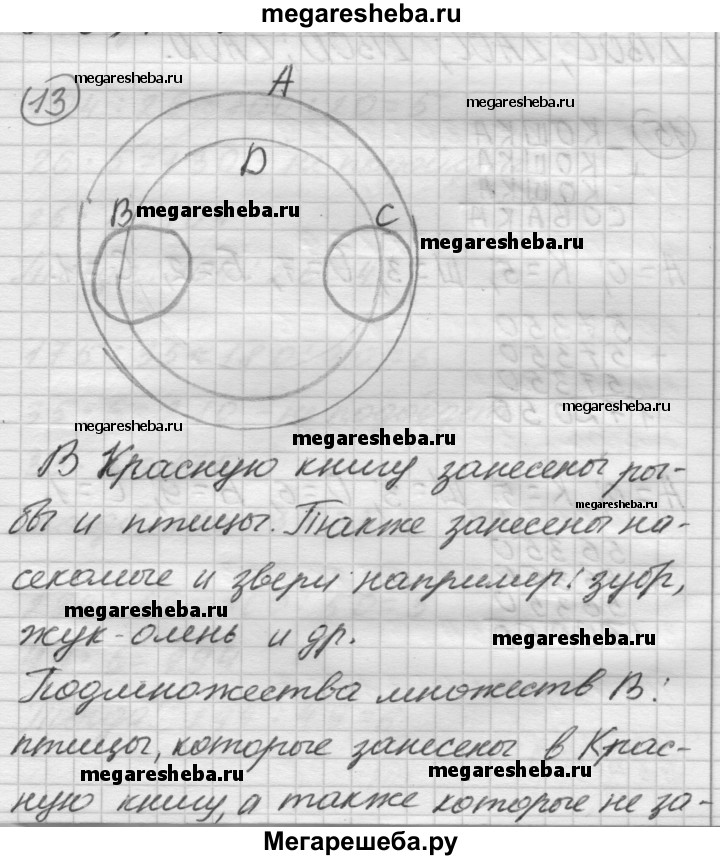 megaresheba.ru
megaresheba.ru
megaresheba.ru
13
A
D
B
C
megaresheba.ru
megaresheba.ru
megaresheba.ru
megaresheba.ru
megaresheba.ru
В Красную книгу занесены ры-
megaresheba.ru
бы и птицы. Также занесены на-
секомые и звери например: зубр,
megaresheba.ru
жук-олень и др.
megaresheba.ru
Подмножества множеств В:
птицы, которые занесены в Крас-
megaresheba.ru
megaresheba.ru
ную книгу, а также которые не за-
Мегарешеба.ру